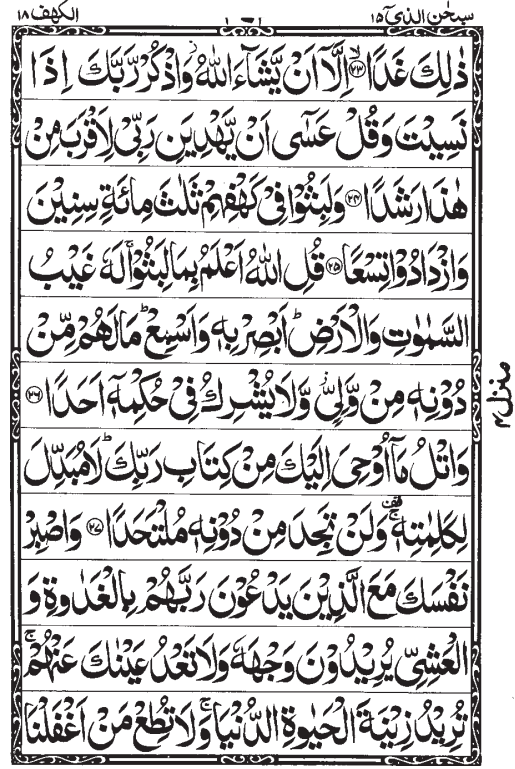 سبحٰن الذیۤ ١٥
١٦١
الكهف ١٨
ذٰلِكَ غَدًا ﴿٢٣﴾ اِلَّاۤ اَنْ يَّشَآءَ اللّٰهُ وَاذْكُرْ رَّبَّكَ اِذَا
نَسِيْتَ وَقُلْ عَسٰۤى اَنْ يَّهْدِيَنِ رَبِّىْ لِاَقْرَبَ مِنْ
هٰذَا رَشَدًا ﴿٢٤﴾ وَلَبِثُوْا فِىْ كَهْفِهِمْ ثَلٰثَ مِائَةٍ سِنِيْنَ
وَازْدَادُوْا تِسْعًا ﴿٢٥﴾ قُلِ اللّٰهُ اَعْلَمُ بِمَا لَبِثُوْا ۚ لَهٗ غَيْبُ
السَّمٰوٰتِ وَالْاَرْضِ ؕ اَبْصِرْ بِهٖ وَاَسْمِعْ ؕ مَا لَهُمْ مِّنْ
دُوْنِهٖ مِنْ وَّلِىٍّ وَّلَا يُشْرِكُ فِىْ حُكْمِهٖۤ اَحَدًا ﴿٢٦﴾
وَاتْلُ مَاۤ اُوْحِىَ اِلَيْكَ مِنْ كِتَابِ رَبِّكَ ؕ لَا مُبَدِّلَ
لِكَلِمٰتِهٖ ۚ وَلَنْ تَجِدَ مِنْ دُوْنِهٖ مُلْتَحَدًا ﴿٢٧﴾ وَاصْبِرْ
نَفْسَكَ مَعَ الَّذِيْنَ يَدْعُوْنَ رَبَّهُمْ بِالْغَدٰوةِ وَ
الْعَشِىِّ يُرِيْدُوْنَ وَجْهَهٗ وَلَا تَعْدُ عَيْنٰكَ عَنْهُمْ ۚ
تُرِيْدُ زِيْنَةَ الْحَيٰوةِ الدُّنْيَا ۚ وَلَا تُطِعْ مَنْ اَغْفَلْنَا
منزل ٤